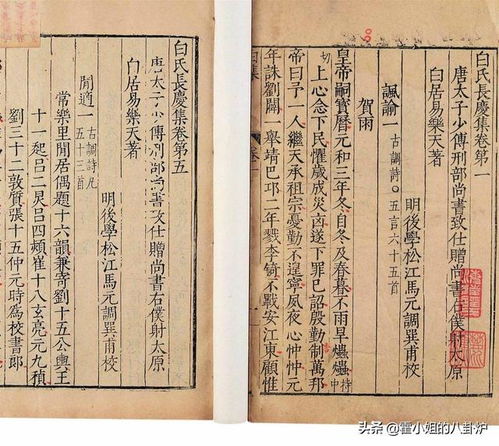 白氏長慶集卷第一
唐太子少傅刑部尚書致仕贈尚書右僕射太原
白居易樂天著
明後學松江馬元調巽甫校
諷諭一 古調詩 五言 六十五首
賀雨
皇帝嗣寶曆元和三年冬自冬及春暮不雨旱爞爞持中
切上心念下民懼歲成災凶遂下罪已詔殷勤制萬邦
帝曰予一人繼天承祖宗憂勤不遑寧夙夜心忡忡元
年誅劉闢一舉靖巴邛二年戮李錡不戰安江東顧惟
白氏長慶集卷第五
唐太子少傅刑部尚書致仕贈尚書右僕射太原
白居易樂天著
明後學松江馬元調巽甫校
閒適一 古調詩凡五十三首
常樂里閒居偶題十六韻兼寄劉十五公輿王
十一起呂二炅呂四熲崔十八玄亮元九稹
劉三十二敦質張十五仲元時為校書郎
头条 @霍小姐的八卦炉